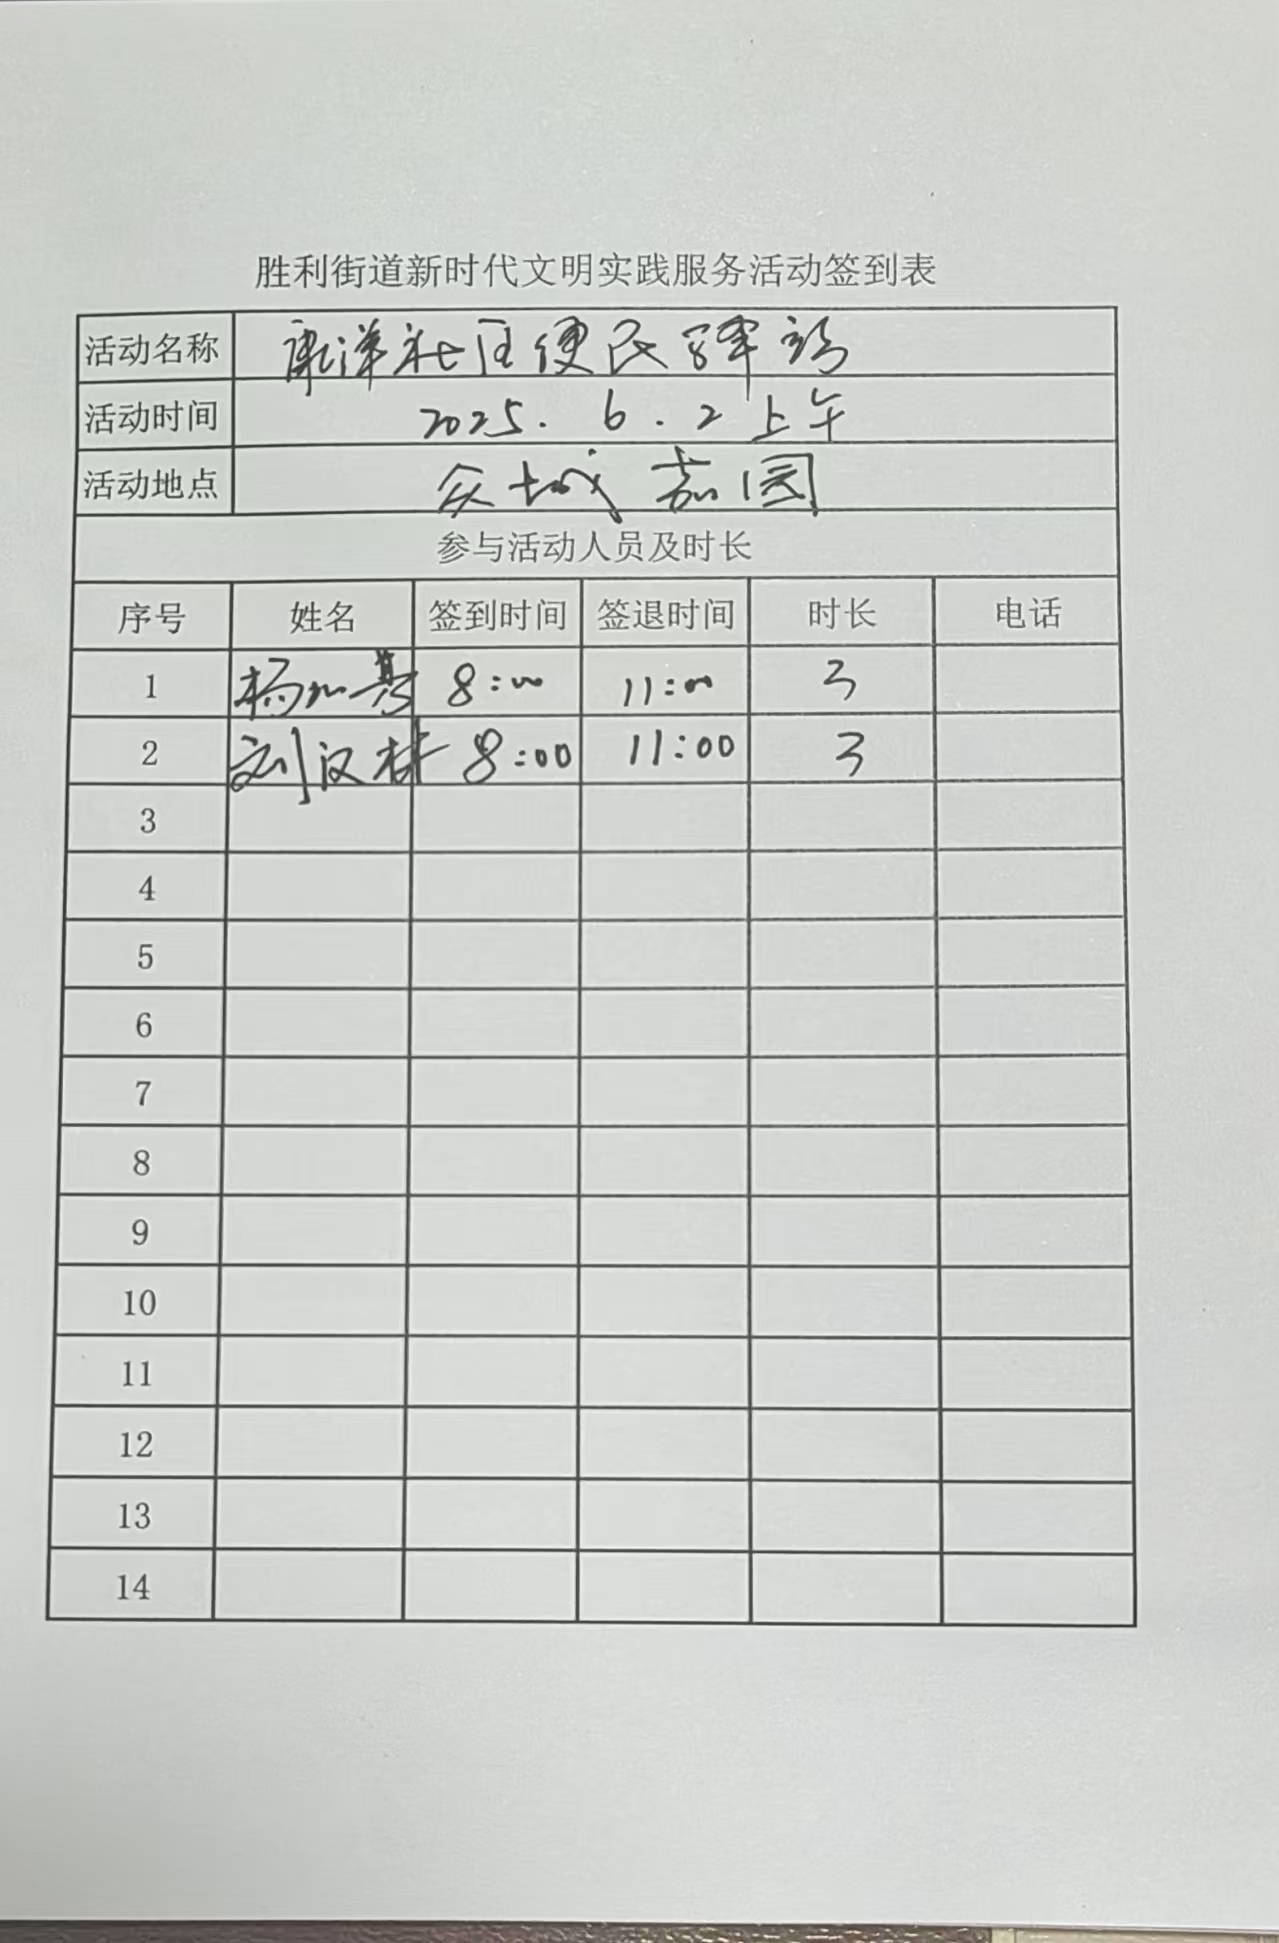 胜利街道新时代文明实践服务活动签到表
活动名称 康洋社区便民驿站
活动时间 2025.6.2上午
活动地点 众城嘉园
参与活动人员及时长
序号 姓名 签到时间 签退时间 时长 电话
1 杨 8:00 11:00 3
2 刘汉林 8:00 11:00 3
3
4
5
6
7
8
9
10
11
12
13
14